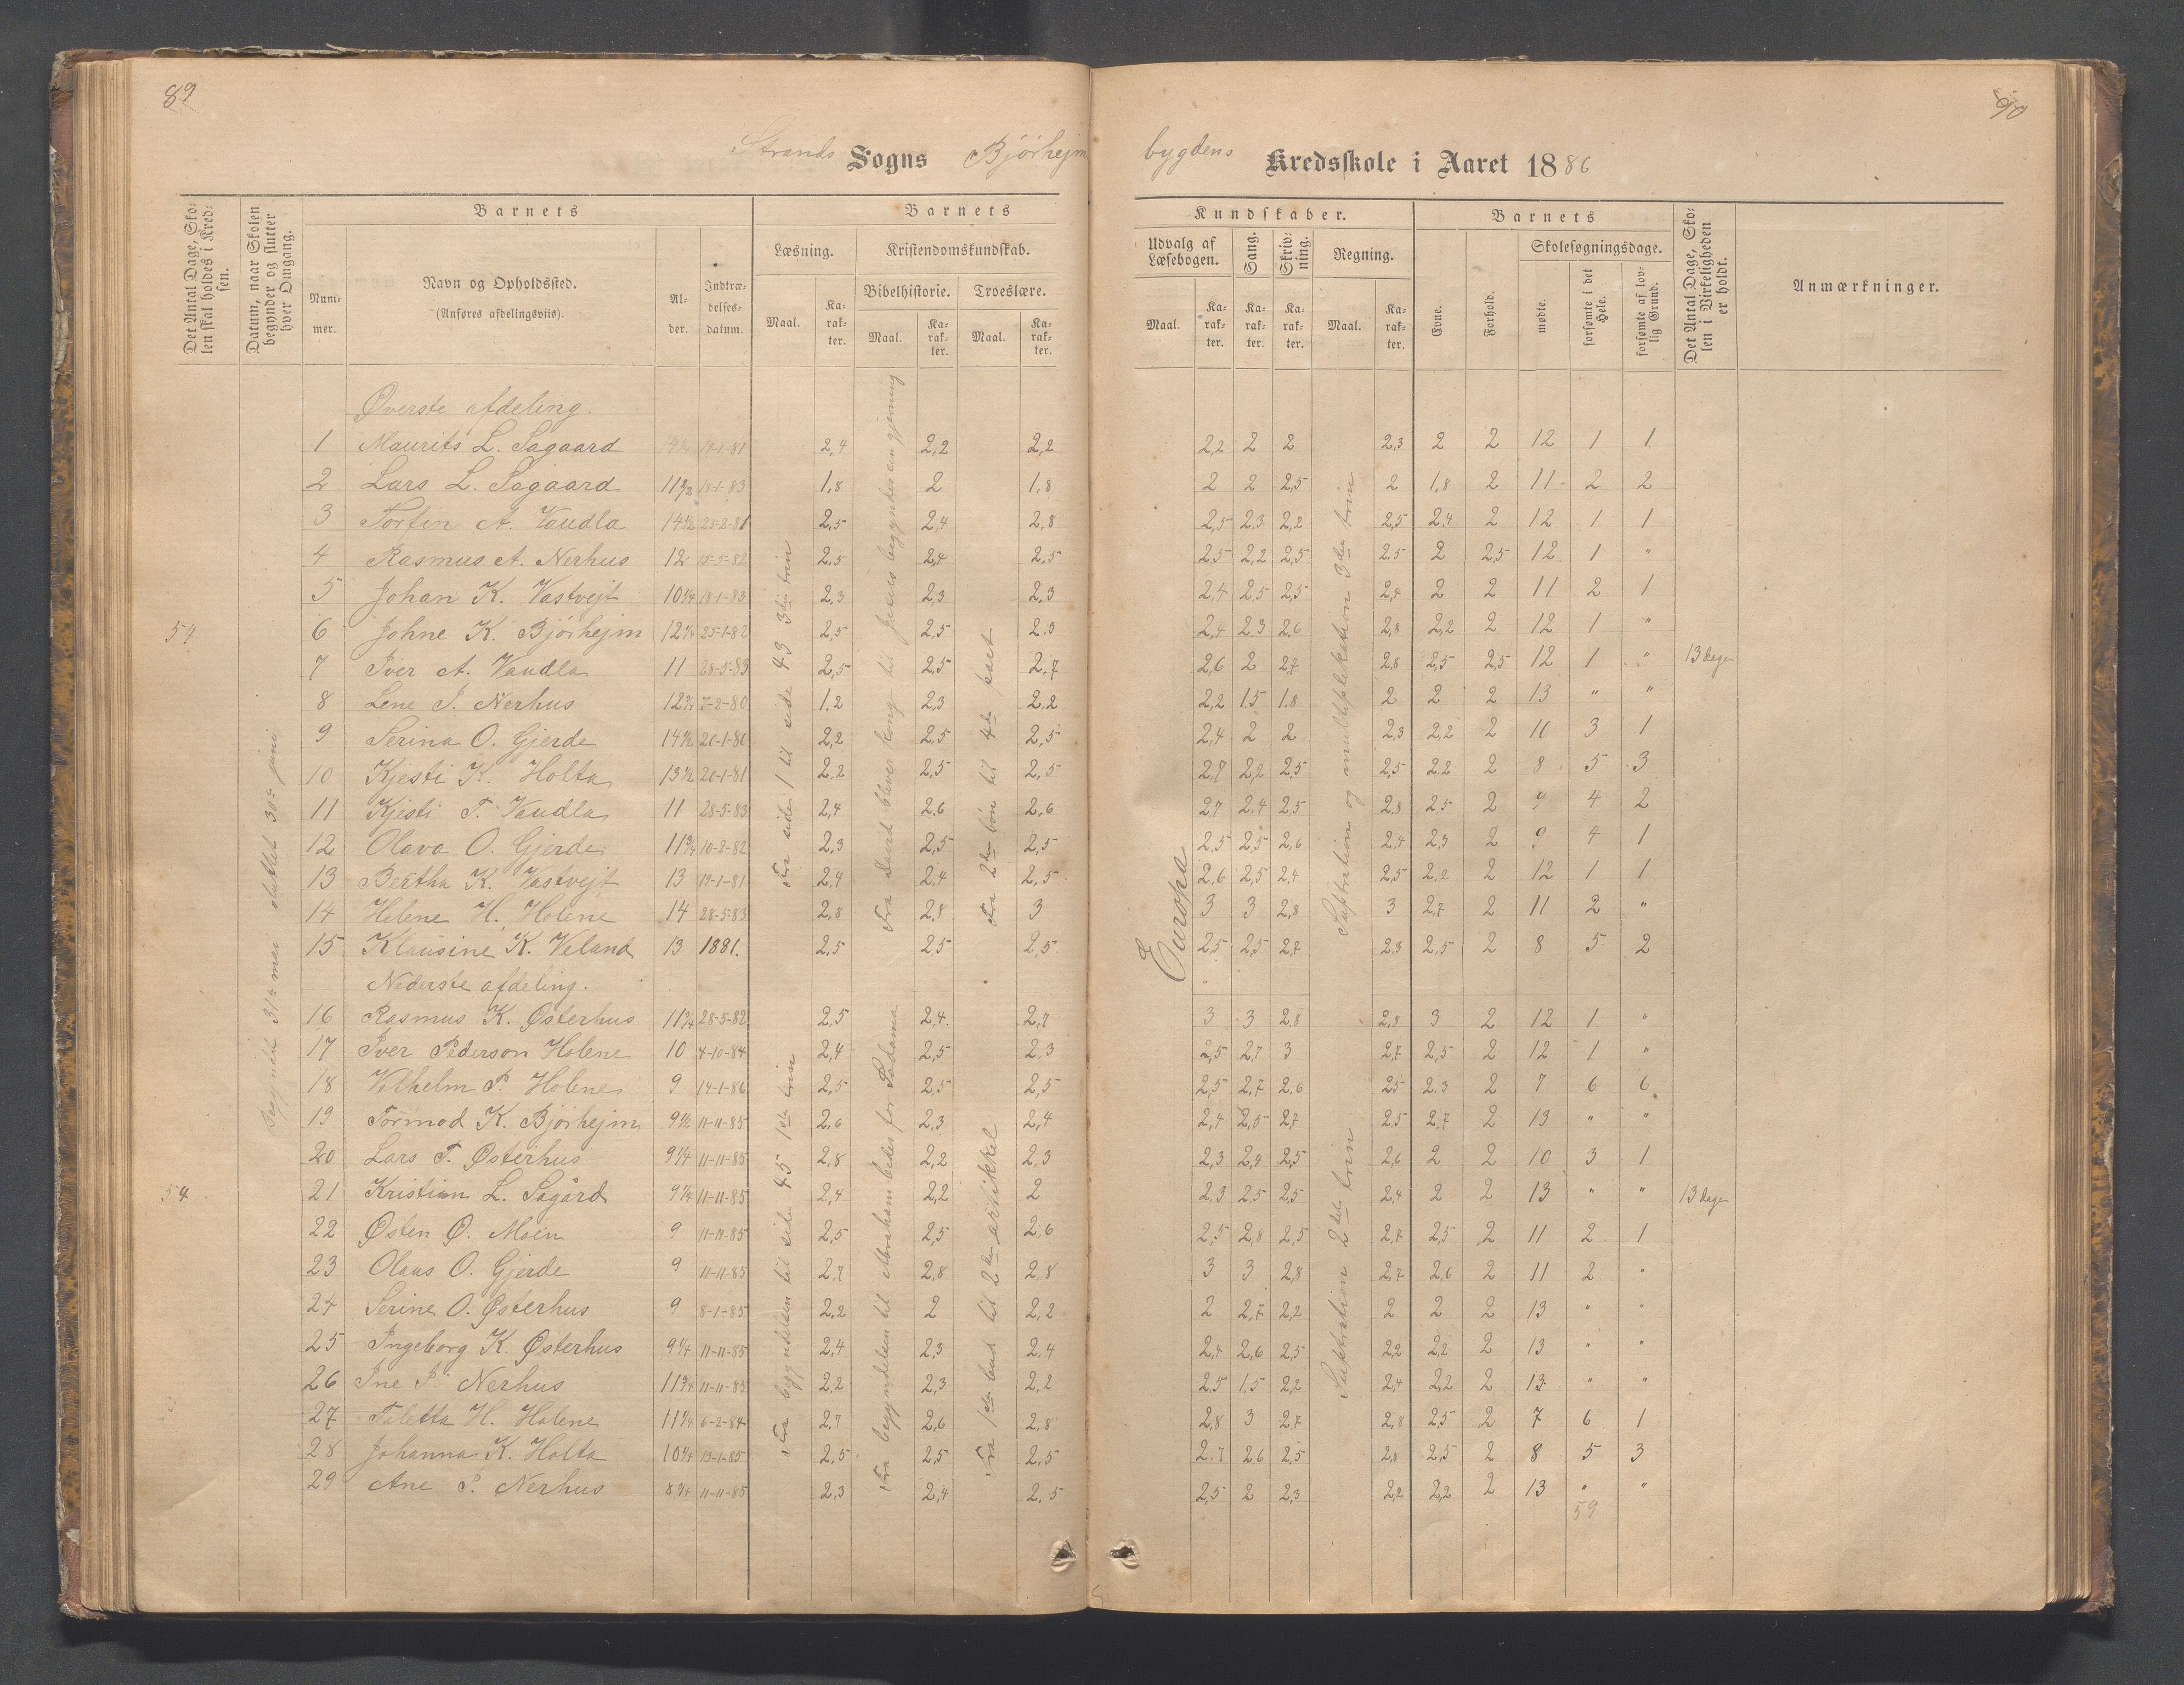 89
90
Strands Sogns Bjørhejm
bygdens Kredsskole i Aaret 1886
Det Antal Dage, Skolen skal holdes i Kredsen.
Datum, naar Skolen begynder og slutter hver Omgang.
Barnets
Nummer.
Navn og Opholdssted.
(Anføres afdelingsviis).
Alder.
Indtrædelsesdatum.
Barnets
Læsning.
Kristendomskundskab.
Bibelhistorie.
Troeslære.
Maal.
Karakter.
Maal.
Karakter.
Maal.
Karakter.
Kundskaber.
Udvalg af Læsebogen.
Sang.
Skrivning.
Regning.
Maal.
Karakter.
Karakter.
Karakter.
Maal.
Karakter.
Barnets
Evne.
Forhold.
Skolesøgningsdage.
mødte.
forsømte i det Hele.
forsømte af lovlig Grund.
Det Antal Dage, Skolen i Virkeligheden er holdt.
Anmærkninger.
Begyndt 31te mai sluttet 30te juni
Fra side 1 til side 43 3die trin
Fra David bliver konge til Jesus begynder sin gjerning
Fra 2den bøn til 4de part
Europa
Suptration og multiplekation 3die trin
Øverste afdeling.
1 Maurits L. Sagaard 19-1-81 2,4 2,2 2,2 2,2 2 2 2,3 2 2 12 1 1
2 Lars L. Sagaard 11 1/2 18-1-83 1,8 2 1,8 2 2 2,5 2 1,8 2 11 2 2
3 Torfin A. Vaudla 14 1/2 25-2-81 2,5 2,4 2,8 2,5 2,3 2,2 2,5 2,4 2 12 1 1
4 Rasmus A. Nerhus 12 15-5-82 2,5 2,4 2,5 2,5 2,2 2,5 2,5 2 2,5 12 1 "
5 Johan K. Vastvejt 10 1/4 18-1-83 2,3 2,3 2,3 2,4 2,5 2,5 2,4 2 2 11 2 1
54 6 Johne K. Bjørhejm 12 1/4 25-1-82 2,5 2,5 2,3 2,4 2,3 2,6 2,8 2,2 2 12 1 "
7 Iver A. Vaudla 11 28-5-83 2,5 2,5 2,7 2,6 2 2,7 2,8 2,5 2,5 12 1 " 13 dage
8 Lene J. Nerhus 12 3/4 7-2-80 1,2 2,3 2,2 2,2 1,5 1,8 2 2 2 13 " "
9 Serina O. Gjerde 14 1/2 20-1-80 2,2 2,5 2,5 2,4 2 2 2,3 2,2 2 10 3 1
10 Kjesti K. Holta 13 1/2 20-1-81 2,2 2,5 2,5 2,7 2,2 2,5 2,5 2,2 2 8 5 3
11 Kjesti T. Vaudla 11 28-5-83 2,4 2,6 2,6 2,7 2,4 2,5 2,8 2,5 2 9 4 2
12 Olava O. Gjerde 11 3/4 10-2-82 2,3 2,5 2,5 2,5 2,5 2,6 2,4 2,3 2 9 4 1
13 Bertha K. Vastvejt 13 19-1-81 2,4 2,4 2,5 2,6 2,5 2,4 2,5 2,2 2 12 1 1
14 Helene H. Holene 14 28-5-83 2,8 2,8 3 3 3 2,8 3 2,7 2 11 2 "
15 Klausine K. Veland 13 1881. 2,5 2,5 2,5 2,5 2,5 2,7 2,3 2,5 2 8 5 2
Nederste afdeling.
Fra begyndelsen til side 45 1ste trin
Fra begyndelsen til Abraham beder for Sodoma
Fra 1ste bud til 2den artikkel
Suptration 2det trin
16 Rasmus K. Østerhus 11 3/4 28-5-82 2,5 2,4 2,7 3 3 2,8 2,8 3 2 12 1 "
17 Iver Pederson Holene 10 4-10-84 2,4 2,5 2,3 2,5 2,7 3 2,7 2,5 2 12 1 "
18 Vilhelm P. Holene 9 14-1-86 2,5 2,5 2,5 2,5 2,7 2,6 2,5 2,3 2 7 6 6
19 Tormod K. Bjørhejm 9 1/2 11-11-85 2,6 2,3 2,4 2,4 2,5 2,7 2,5 2,7 2 13 " "
20 Lars T. Østerhus 9 1/4 11-11-85 2,8 2,2 2,3 2,3 2,4 2,5 2,6 2 2 10 3 1
54 21 Kristian L. Sagård 9 1/4 11-11-85 2,4 2,2 2 2,3 2,5 2,5 2,4 2 2 13 " " 13 dage
22 Østen Ø. Moen 9 11-11-85 2,5 2,5 2,6 2,5 2,8 2,5 2,7 2,5 2 11 2 1
23 Olaus O. Gjerde 9 11-11-85 2,7 2,8 2,8 3 3 2,8 2,7 2,6 2 11 2 "
24 Serine O. Østerhus 9 8-1-85 2,2 2 2,2 2 2,7 2,2 2 2 2 13 " "
25 Ingeborg K. Østerhus 9 1/4 11-11-85 2,4 2,3 2,4 2,4 2,6 2,5 2,2 2,2 2 13 " "
26 Ine P. Nerhus 11 3/4 11-11-83 2,2 2,3 2,2 2,5 1,5 2,2 2,4 2,2 2 13 " "
27 Taletta H. Holene 11 1/4 6-2-84 2,7 2,6 2,8 2,8 3 2,7 2,8 2,5 2 7 6 1
28 Johanna K. Holta 10 1/4 13-1-85 2,5 2,5 2,5 2,7 2,6 2,5 2,8 2,5 2 8 5 3
29 Ane P. Nerhus 8 3/4 11-11-85 2,3 2,4 2,5 2,5 2 2,3 2,2 2,2 2 13 " "
59